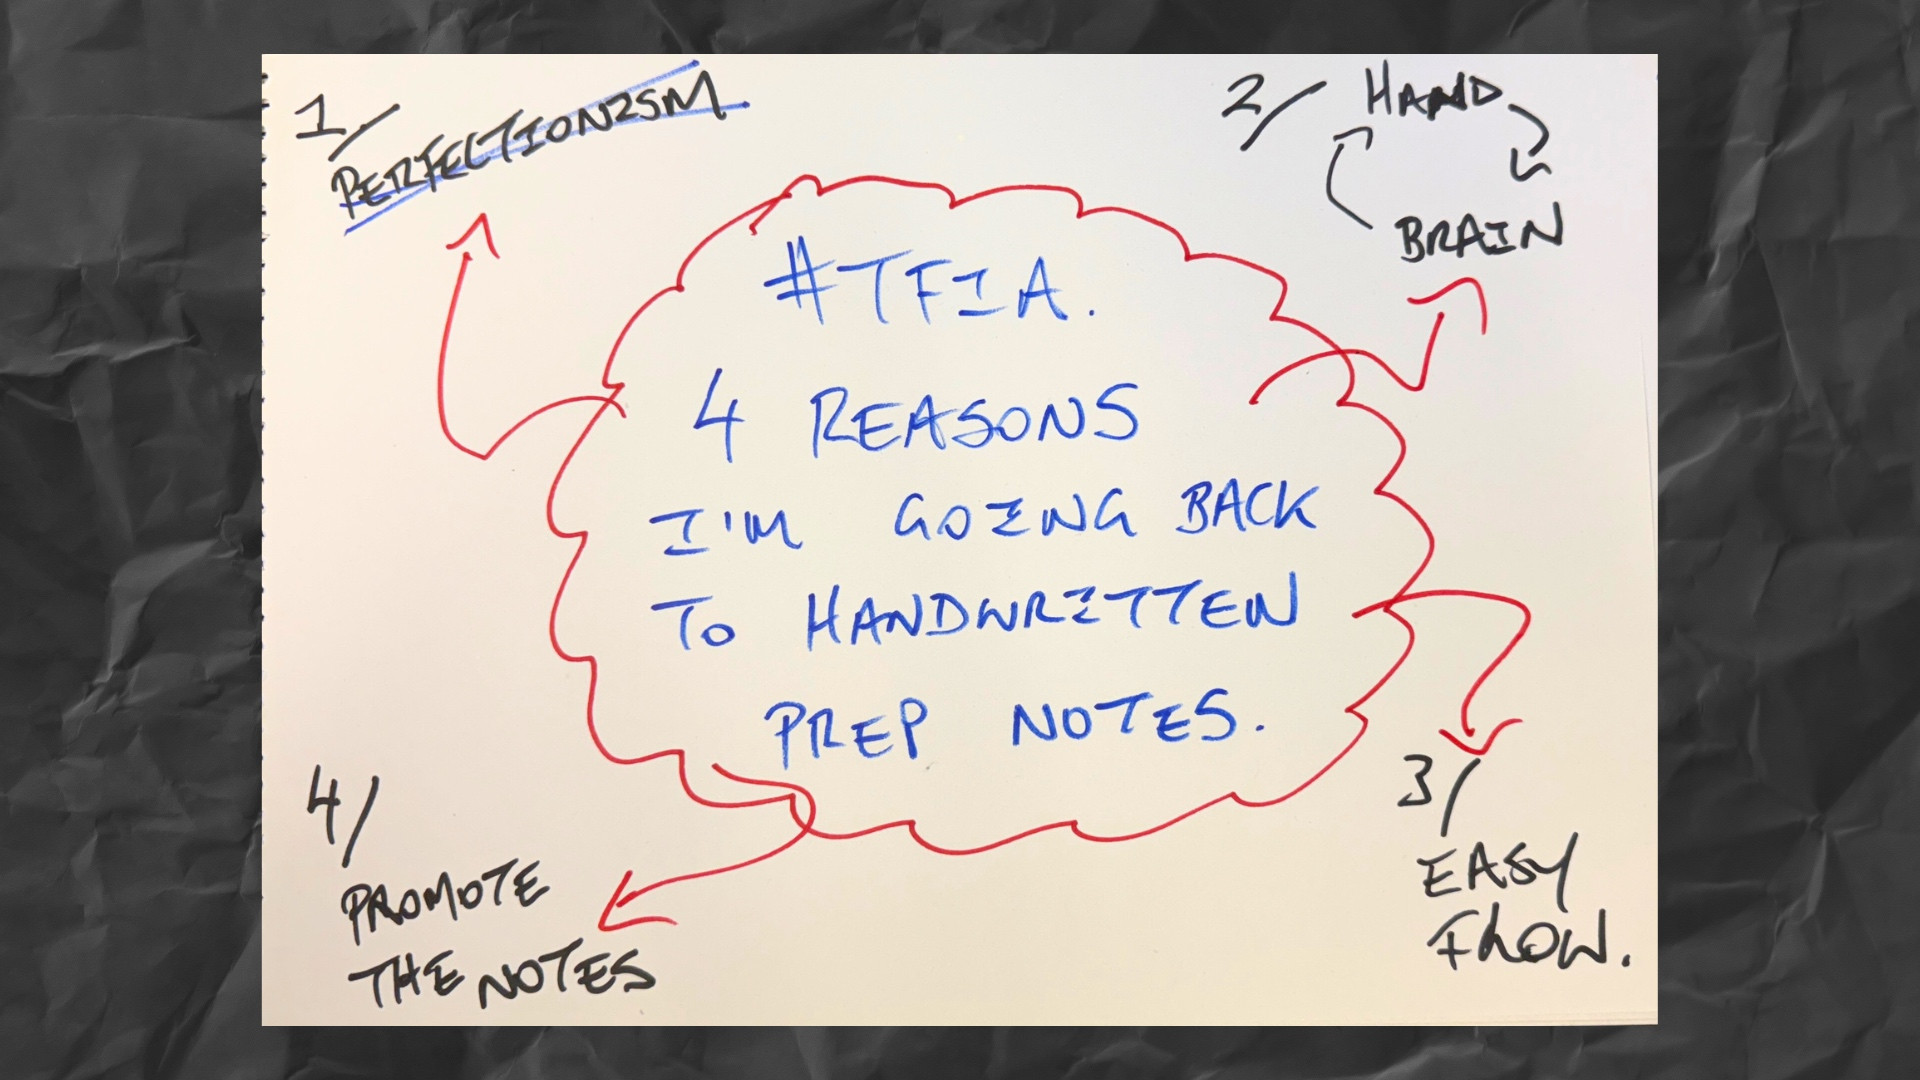 1/
PERFECTIONISM
2/ HAND
BRAIN
#TFIA.
4 REASONS
I'M GOING BACK
TO HANDWRITTEN
PREP NOTES.
3/
EASY
FLOW.
4/
PROMOTE
THE NOTES